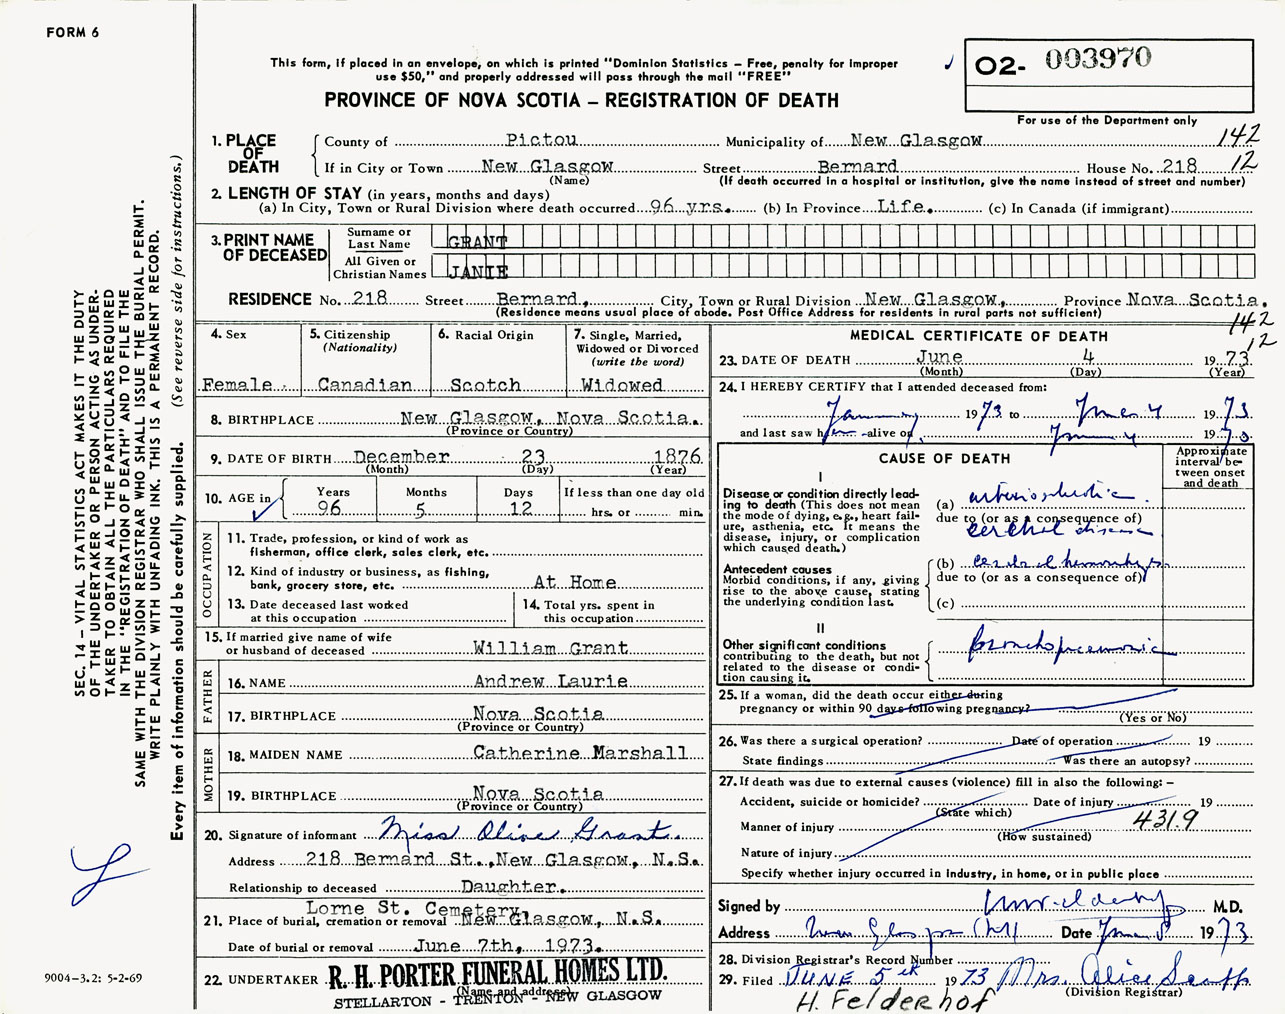 FORM 6
This form, if placed in an envelope, on which is printed "Dominion Statistics – Free, penalty for improper
use $50," and properly addressed will pass through the mail "FREE"
PROVINCE OF NOVA SCOTIA – REGISTRATION OF DEATH
O2- 003970
For use of the Department only
142
12
1. PLACE OF DEATH
County of Pictou Municipality of New Glasgow
If in City or Town New Glasgow Street Bernard House No. 218
(Name) (If death occurred in a hospital or institution, give the name instead of street and number)
2. LENGTH OF STAY (in years, months and days)
(a) In City, Town or Rural Division where death occurred 96 yrs. (b) In Province Life. (c) In Canada (if immigrant)
3. PRINT NAME OF DECEASED
Surname or Last Name GRANT
All Given or Christian Names JANIE
RESIDENCE No. 218 Street Bernard, City, Town or Rural Division New Glasgow, Province Nova Scotia.
(Residence means usual place of abode. Post Office Address for residents in rural parts not sufficient)
142
12
4. Sex
Female
5. Citizenship (Nationality)
Canadian
6. Racial Origin
Scotch
7. Single, Married, Widowed or Divorced (write the word)
Widowed
8. BIRTHPLACE New Glasgow, Nova Scotia.
(Province or Country)
9. DATE OF BIRTH December 23 1876
(Month) (Day) (Year)
10. AGE in
Years Months Days If less than one day old
96 5 12 hrs. or min.
OCCUPATION
11. Trade, profession, or kind of work as
fisherman, office clerk, sales clerk, etc.
12. Kind of industry or business, as fishing,
bank, grocery store, etc. At Home
13. Date deceased last worked
at this occupation
14. Total yrs. spent in
this occupation
15. If married give name of wife
or husband of deceased William Grant
FATHER
16. NAME Andrew Laurie
17. BIRTHPLACE Nova Scotia
(Province or Country)
MOTHER
18. MAIDEN NAME Catherine Marshall
19. BIRTHPLACE Nova Scotia
(Province or Country)
20. Signature of informant Miss Olive Grant.
Address 218 Bernard St., New Glasgow, N.S.
Relationship to deceased Daughter.
Lorne St. Cemetery,
21. Place of burial, cremation or removal New Glasgow, N.S.
Date of burial or removal June 7th, 1973.
22. UNDERTAKER R. H. PORTER FUNERAL HOMES LTD.
(Name and address)
STELLARTON - TRENTON - NEW GLASGOW
MEDICAL CERTIFICATE OF DEATH
23. DATE OF DEATH June 4 1973
(Month) (Day) (Year)
24. I HEREBY CERTIFY that I attended deceased from:
January 1973 to June 4 1973
and last saw her alive on June 4 1973
CAUSE OF DEATH
Approximate interval between onset and death
I
Disease or condition directly leading to death (This does not
mean the mode of dying, e.g., heart failure, asthenia, etc. It means the
disease, injury, or complication
which caused death.)
(a) arteriosclerotic
due to (or as a consequence of)
cerebral disease
Antecedent causes
Morbid conditions, if any, giving
rise to the above cause, stating
the underlying condition last.
(b) cerebral hemorrhage
due to (or as a consequence of)
(c)
II
Other significant conditions
contributing to the death, but not
related to the disease or condition causing it.
bronchopneumonia
25. If a woman, did the death occur either during
pregnancy or within 90 days following pregnancy?
(Yes or No)
26. Was there a surgical operation? Date of operation 19
State findings Was there an autopsy?
27. If death was due to external causes (violence) fill in also the following: –
Accident, suicide or homicide? Date of injury 19
(State which)
Manner of injury 4319
(How sustained)
Nature of injury
Specify whether injury occurred in industry, in home, or in public place
Signed by M.D.
Address New Glasgow Date June 5 1973
28. Division Registrar's Record Number
29. Filed JUNE 5th 1973 Mrs. Alice Scott
(Division Registrar)
H. Felderhof
SEC. 14 – VITAL STATISTICS ACT MAKES IT THE DUTY
OF THE UNDERTAKER OR PERSON ACTING AS UNDER-
TAKER TO OBTAIN ALL THE PARTICULARS REQUIRED
IN THE "REGISTRATION OF DEATH" AND TO FILE THE
SAME WITH THE DIVISION REGISTRAR WHO SHALL ISSUE THE BURIAL PERMIT.
WRITE PLAINLY WITH UNFADING INK. THIS IS A PERMANENT RECORD.
Every item of information should be carefully supplied. (See reverse side for instructions.)
9004-3.2: 5-2-69